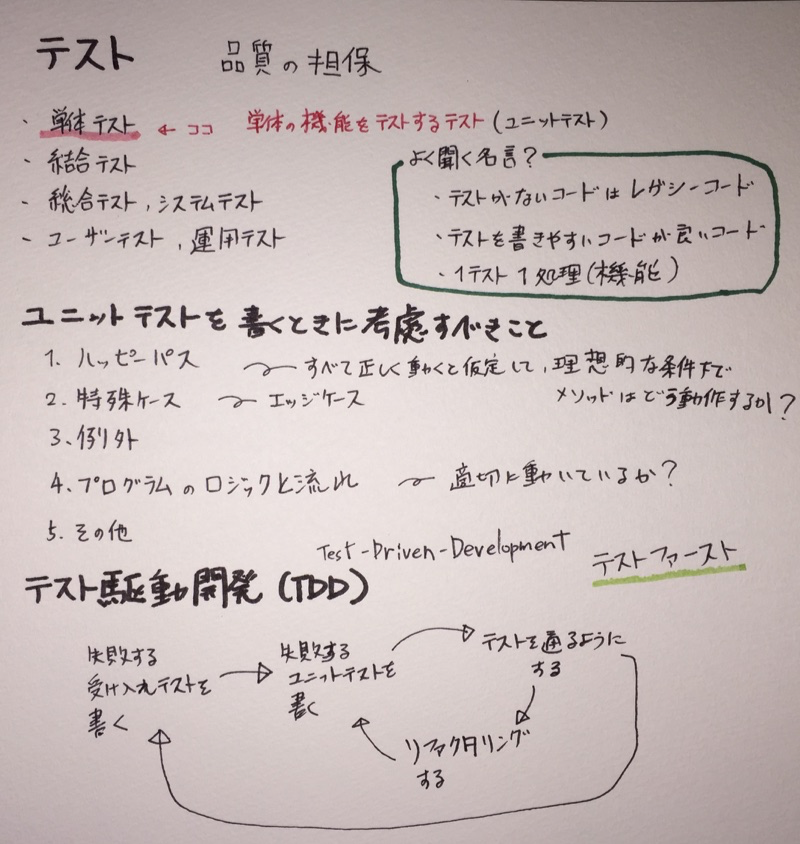 テスト 品質の担保
・単体テスト ← ココ 単体の機能をテストするテスト(ユニットテスト)
・結合テスト
・総合テスト,システムテスト
・ユーザーテスト,運用テスト
よく聞く名言?
・テストがないコードはレガシーコード
・テストを書きやすいコードが良いコード
・1テスト1処理(機能)
ユニットテストを書くときに考慮すべきこと
1. ハッピーパス 〜 すべて正しく動くと仮定して,理想的な条件下で
メソッドはどう動作するか?
2. 特殊ケース 〜 エッジケース
3. 例外
4. プログラムのロジックと流れ 〜 適切に動いているか?
5. その他
Test-Driven-Development
テスト駆動開発(TDD)
テストファースト
失敗する
受け入れテストを
書く
失敗する
ユニットテストを
書く
テストを通るように
する
リファクタリング
する